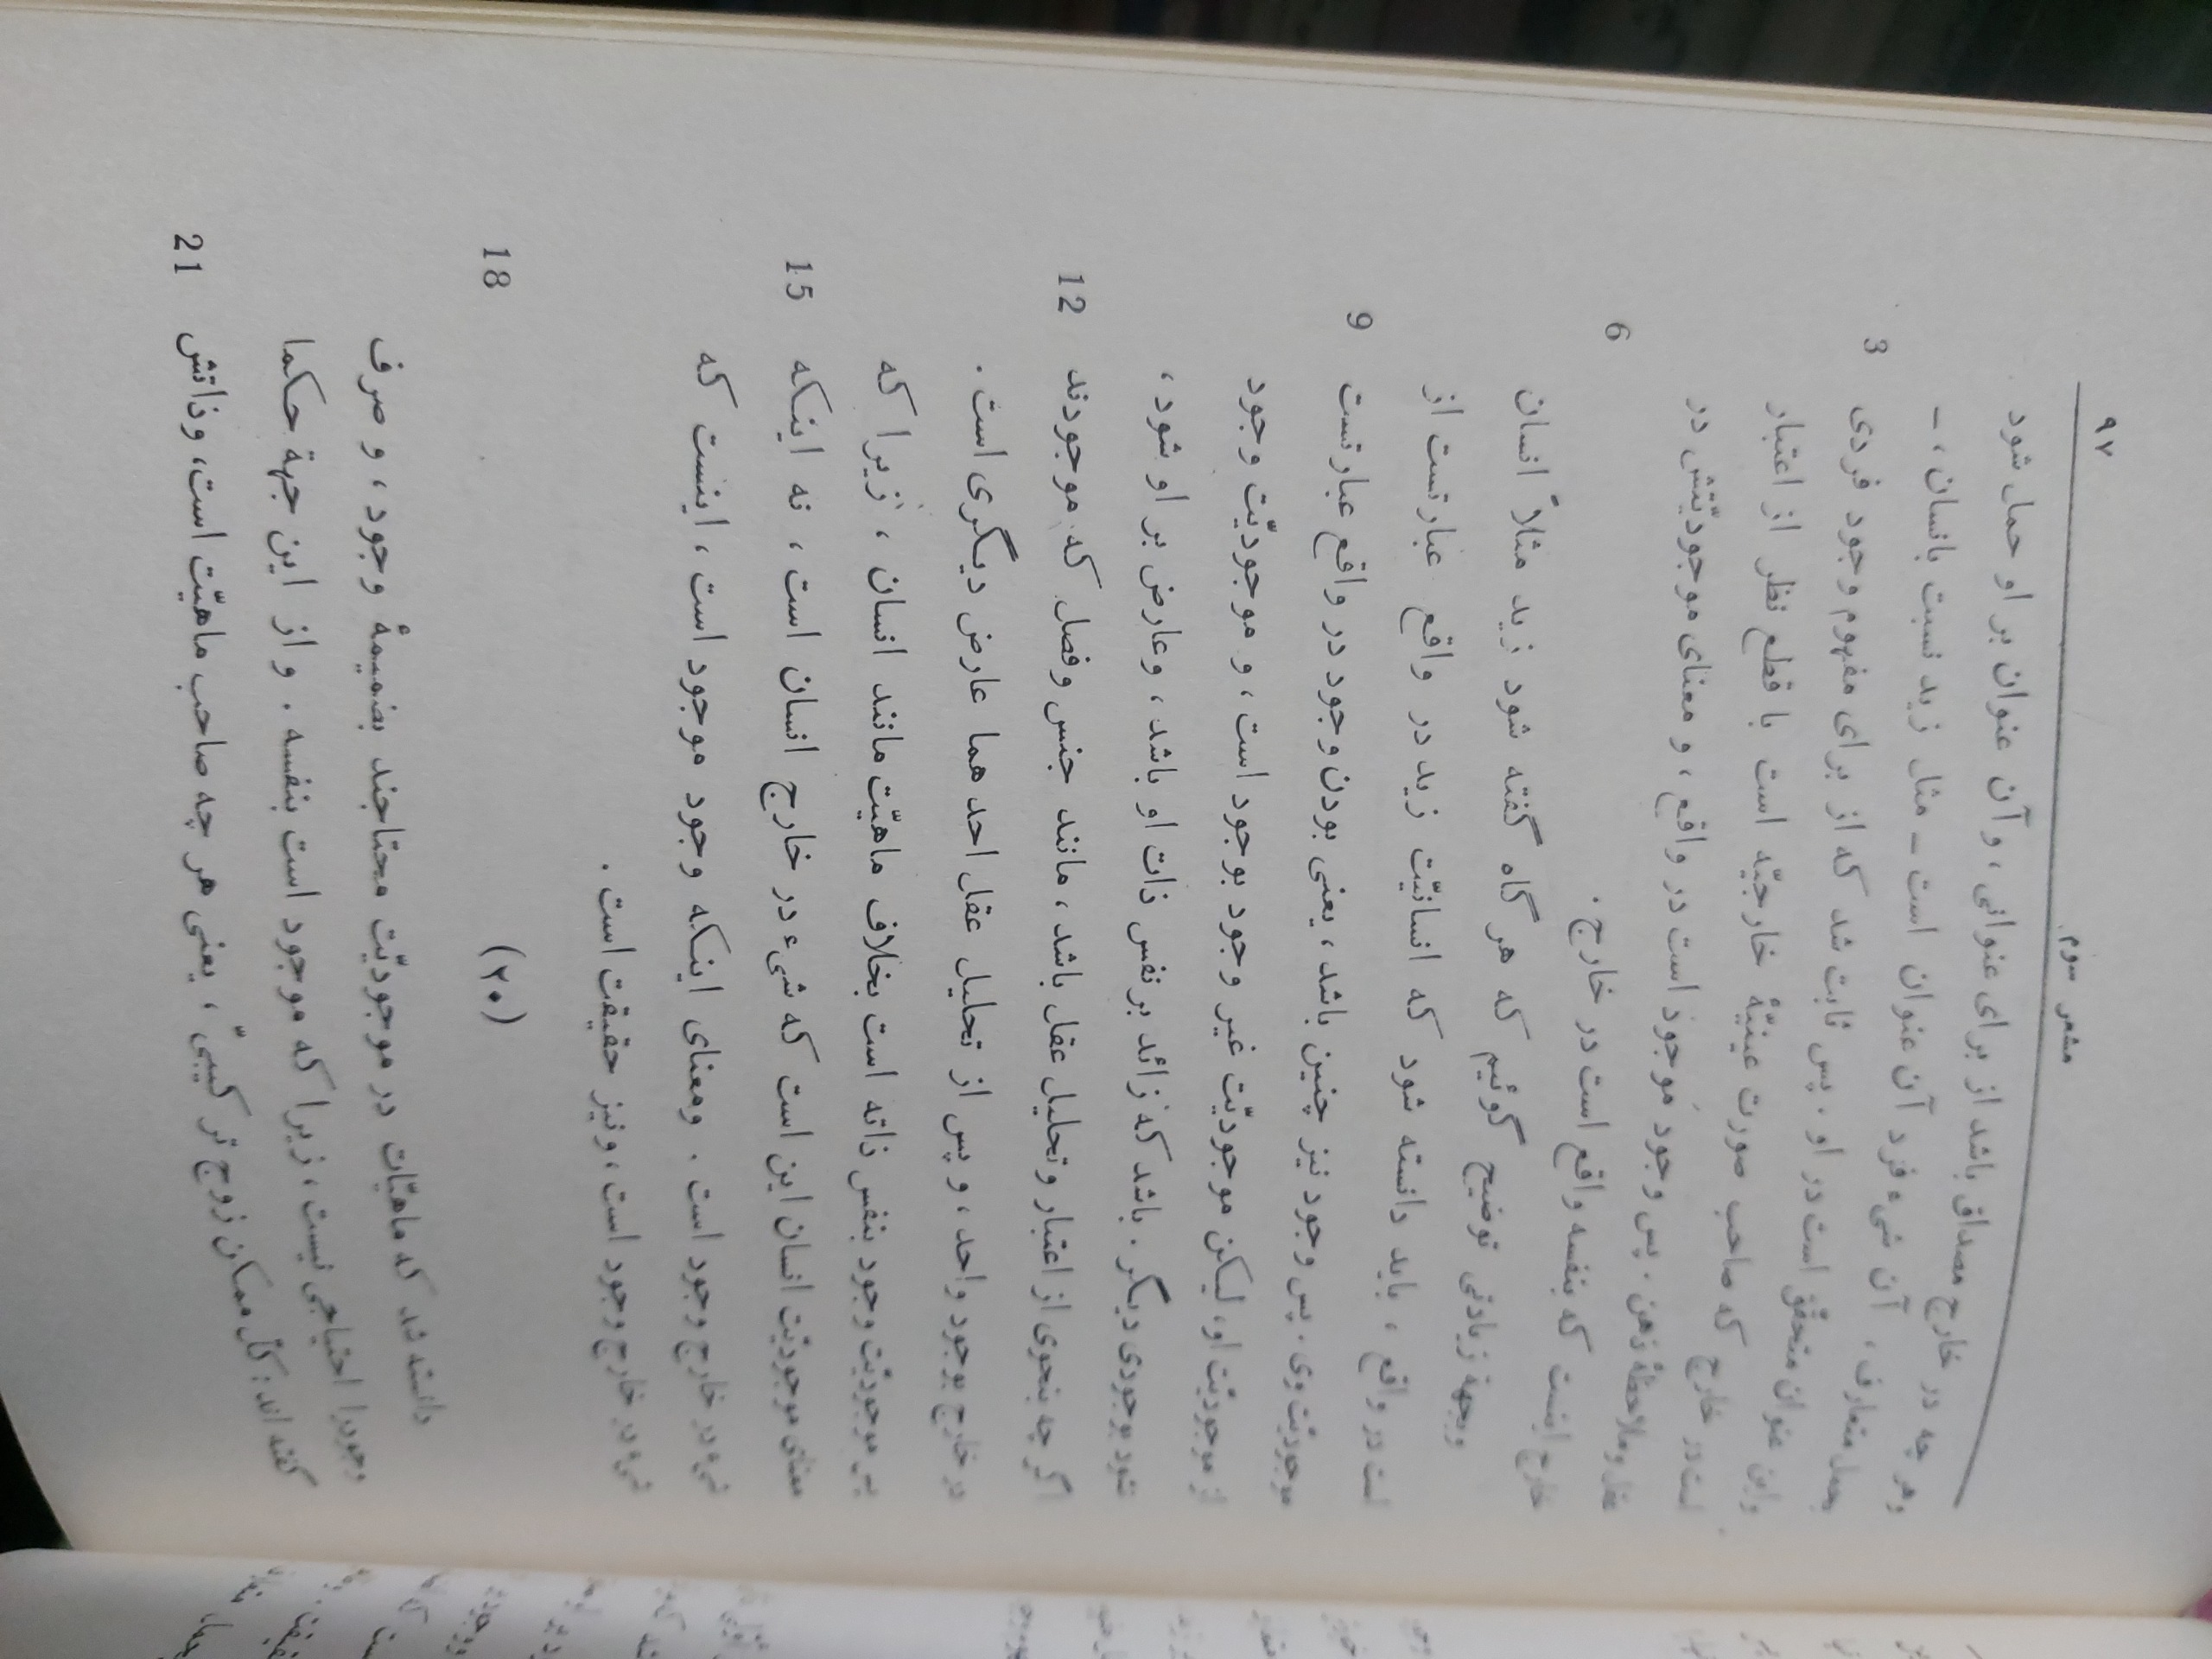 ۹۷
مشعر سوم
وهر چه در خارج مصداق باشد از برای عنوانی، و آن عنوان بر او حمل شود
بحمل متعارف، آن شیء فرد آن عنوان است ــ مثل زید نسبت بانسان، ــ
واین عنوان متحقّق است در او. پس ثابت شد که از برای مفهوم وجود فردی 3
است در خارج که صاحب صورت عینیّهٔ خارجیّه است با قطع نظر از اعتبار
عقل وملاحظهٔ ذهن. پس وجود موجود است در واقع، و معنای موجودیّتش در
خارج اینست که بنفسه واقع است در خارج. 6
وبجهة زیادتی توضیح گوئیم که هر گاه گفته شود زید مثلاً انسان
است در واقع، باید دانسته شود که انسانیّت زید در واقع عبارتست از
موجودیّت وی. پس وجود نیز چنین باشد، یعنی بودن وجود در واقع عبارتست 9
از موجودیّت او، لیکن موجودیّت غیر وجود بوجود است، و موجودیّت وجود
نشود بوجودی دیگر. باشد که زائد بر نفس ذات او باشد، وعارض بر او شود،
اگر چه بنحوی از اعتبار وتحلیل عقل باشد، مانند جنس وفصل که موجودند 12
در خارج بوجود واحد، و پس از تحلیل عقل احد هما عارض دیگری است.
پس موجودیّت وجود بنفس ذاته است بخلاف ماهیّت مانند انسان، زیرا که
معنای موجودیّت انسان این است که شیء در خارج انسان است، نه اینکه 15
شیء در خارج وجود است. ومعنای اینکه وجود موجود است، اینست که
شیء در خارج وجود است، ونیز حقیقت است.
(۲۰) 18
دانسته شد که ماهیّات در موجودیّت محتاجند بضمیمهٔ وجود، و صرف
وجودرا احتیاجی نیست، زیرا که موجود است بنفسه. و از این جهة حکما
گفته اند: کلّ ممکن زوج ترکیبیّ، یعنی هر چه صاحب ماهیّت است، وذاتش 21